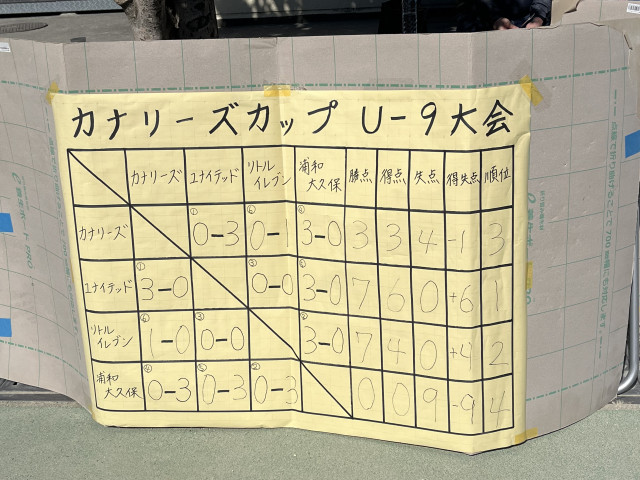 カナリーズカップ U-9大会
カナリーズ ユナイテッド リトルイレブン 浦和大久保 勝点 得点 失点 得失点 順位
カナリーズ ①0-3 0-1 3-0 3 3 4 -1 3
ユナイテッド ①3-0 0-0 3-0 7 6 0 +6 1
リトルイレブン ⑥1-0 ③0-0 ②3-0 7 4 0 +4 2
浦和大久保 ④0-3 0-3 ②0-3 0 0 9 -9 4